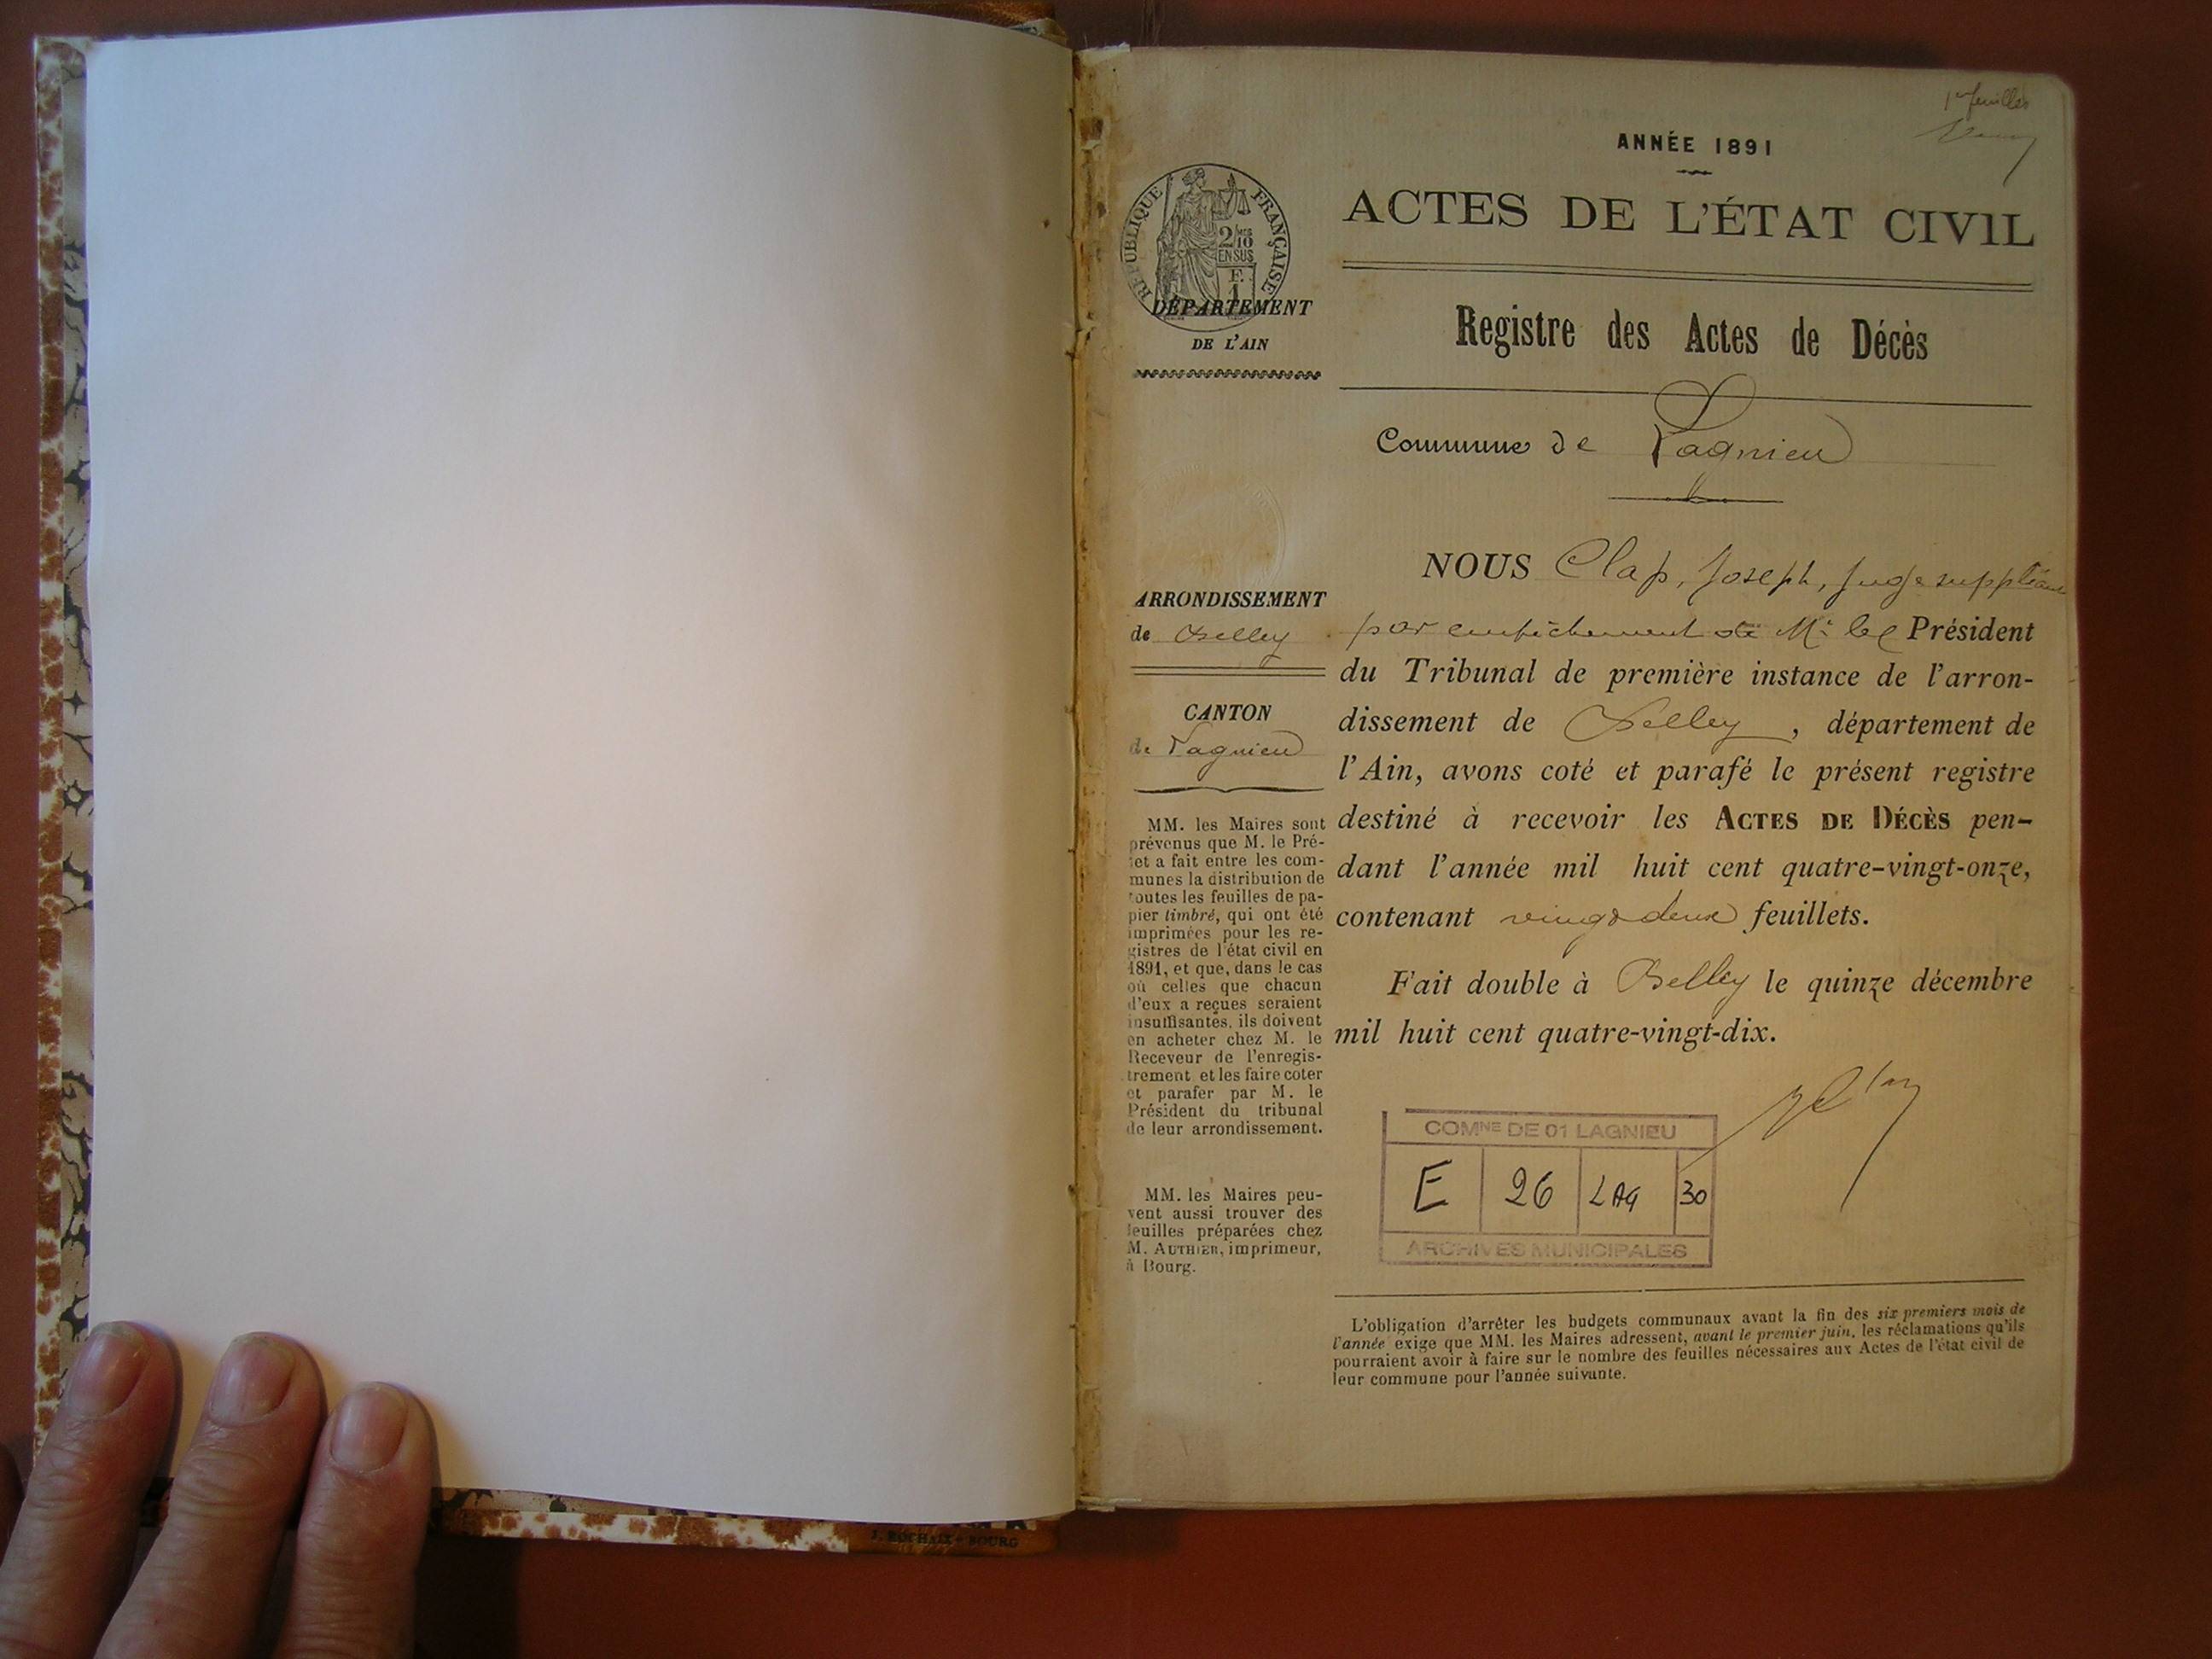 1er feuillet
ANNÉE 1891
ACTES DE L'ÉTAT CIVIL
RÉPUBLIQUE FRANÇAISE
2/10
EN SUS
F.
1
DÉPARTEMENT
DE L'AIN
Registre des Actes de Décès
Commune de Lagnieu
ARRONDISSEMENT
de Belley
CANTON
de Lagnieu
MM. les Maires sont
prévenus que M. le Pré-
fet a fait entre les com-
munes la distribution de
toutes les feuilles de pa-
pier timbré, qui ont été
imprimées pour les re-
gistres de l'état civil en
1891, et que, dans le cas
où celles que chacun
d'eux a reçues seraient
insuffisantes, ils doivent
en acheter chez M. le
Receveur de l'enregis-
trement et les faire coter
et parafer par M. le
Président du tribunal
de leur arrondissement.
MM. les Maires peu-
vent aussi trouver des
feuilles préparées chez
M. AUTHIER, imprimeur,
à Bourg.
NOUS Clap, Joseph, Juge suppléant
par empêchement de Mr le Président
du Tribunal de première instance de l'arron-
dissement de Belley, département de
l'Ain, avons coté et parafé le présent registre
destiné à recevoir les ACTES DE DÉCÈS pen-
dant l'année mil huit cent quatre-vingt-onze,
contenant vingt deux feuillets.
Fait double à Belley le quinze décembre
mil huit cent quatre-vingt-dix.
COMNE DE 01 LAGNIEU
E 26 LAG 30
ARCHIVES MUNICIPALES
L'obligation d'arrêter les budgets communaux avant la fin des six premiers mois de
l'année exige que MM. les Maires adressent, avant le premier juin, les réclamations qu'ils
pourraient avoir à faire sur le nombre des feuilles nécessaires aux Actes de l'état civil de
leur commune pour l'année suivante.
J. ROCHAIX - BOURG